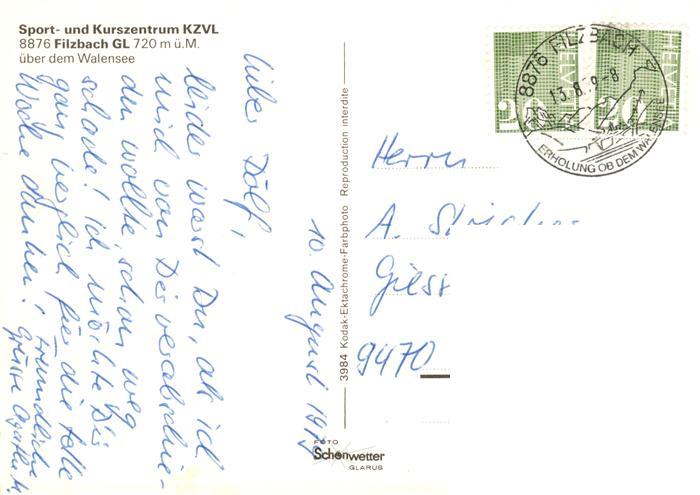 Sport- und Kurszentrum KZVL
8876 Filzbach GL 720 m ü.M.
über dem Walensee
10. August 1979
Lieber Dölf,
leider warst Du, als ich
mich von Dir verabschie-
den wollte, schon weg
schade! Ich möchte Dir
ganz herzlich für die tolle
Woche danken!
Freundliche
Grüsse Agathe
3984 Kodak-Ektachrome-Farbphoto Reproduction interdite
FOTO
Schönwetter
GLARUS
HELVETIA
20
HELVETIA
20
8876 FILZBACH
13.8.79-8
ERHOLUNG OB DEM WALENSEE
Herrn
A.
9470